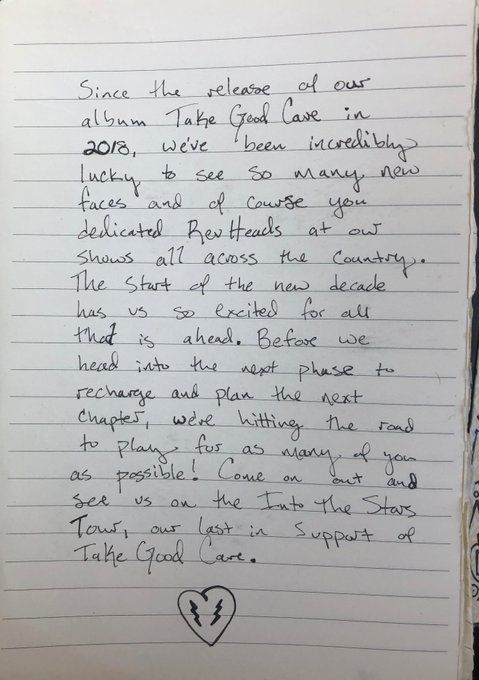 Since the release of our
album Take Good Care in
2018, we've been incredibly
lucky to see so many new
faces and of course you
dedicated RevHeads at our
shows all across the country.
The start of the new decade
has us so excited for all
that is ahead. Before we
head into the next phase to
recharge and plan the next
chapter, we're hitting the road
to play for as many of you
as possible! Come on out and
see us on the Into The Stars
Tour, our last in support of
Take Good Care.